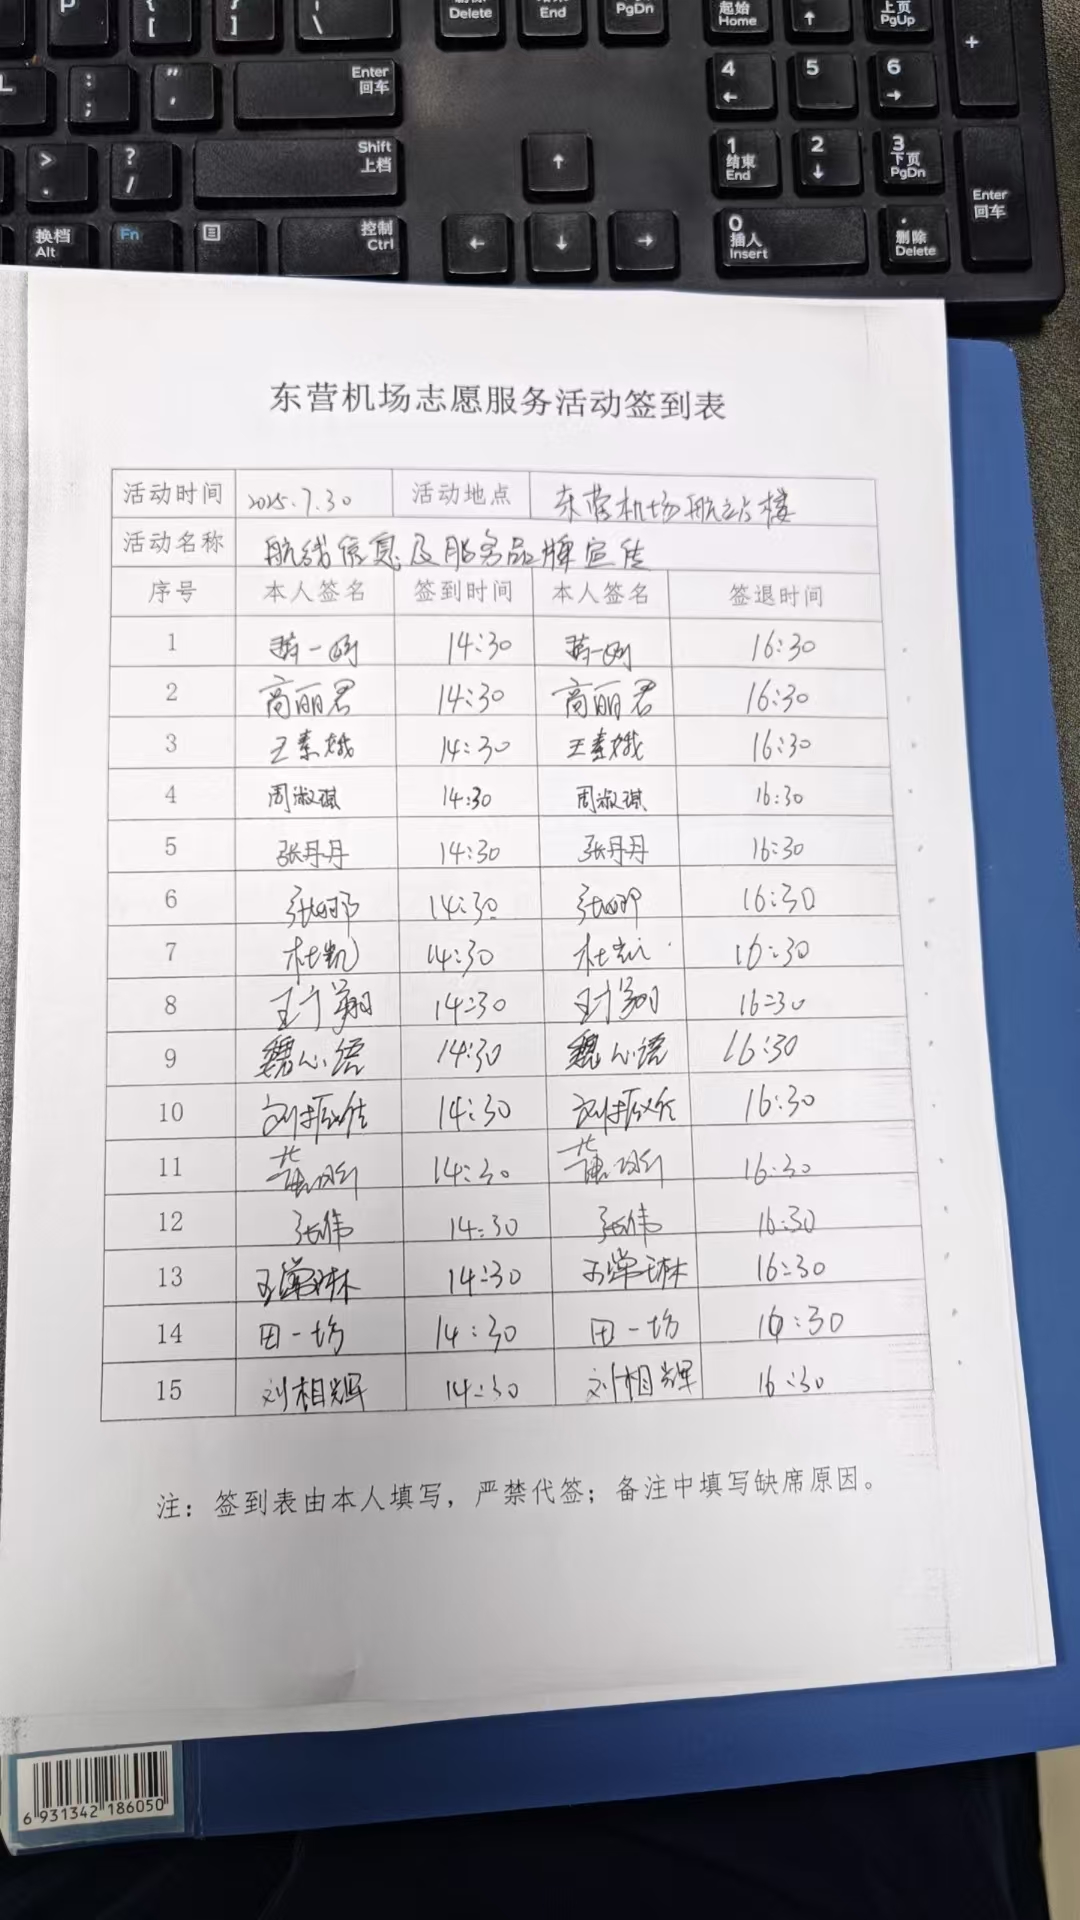 P { [ } ] | \ Delete End PgDn 起始 Home ↑ 上页 PgUp +
L : ; " ' Enter 回车 4 ← 5 6 →
> . ? / Shift 上档 ↑ 1 结束 End 2 ↓ 3 下页 PgDn Enter 回车
换档 Alt Fn 控制 Ctrl ← ↓ → 0 插入 Insert . 删除 Delete
东营机场志愿服务活动签到表
活动时间 2025.7.30 活动地点 东营机场航站楼
活动名称 航线信息及服务品牌宣传
序号 本人签名 签到时间 本人签名 签退时间
1 14:30 16:30
2 高丽君 14:30 高丽君 16:30
3 王素娥 14:30 王素娥 16:30
4 周淑琪 14:30 周淑琪 16:30
5 张丹丹 14:30 张丹丹 16:30
6 张娜 14:30 张娜 16:30
7 杜凯 14:30 杜凯 16:30
8 14:30 16:30
9 魏心语 14:30 魏心语 16:30
10 14:30 16:30
11 14:30 16:30
12 张伟 14:30 张伟 16:30
13 14:30 16:30
14 田一坊 14:30 田一坊 16:30
15 刘相辉 14:30 刘相辉 16:30
注：签到表由本人填写，严禁代签；备注中填写缺席原因。
6 931342 186050